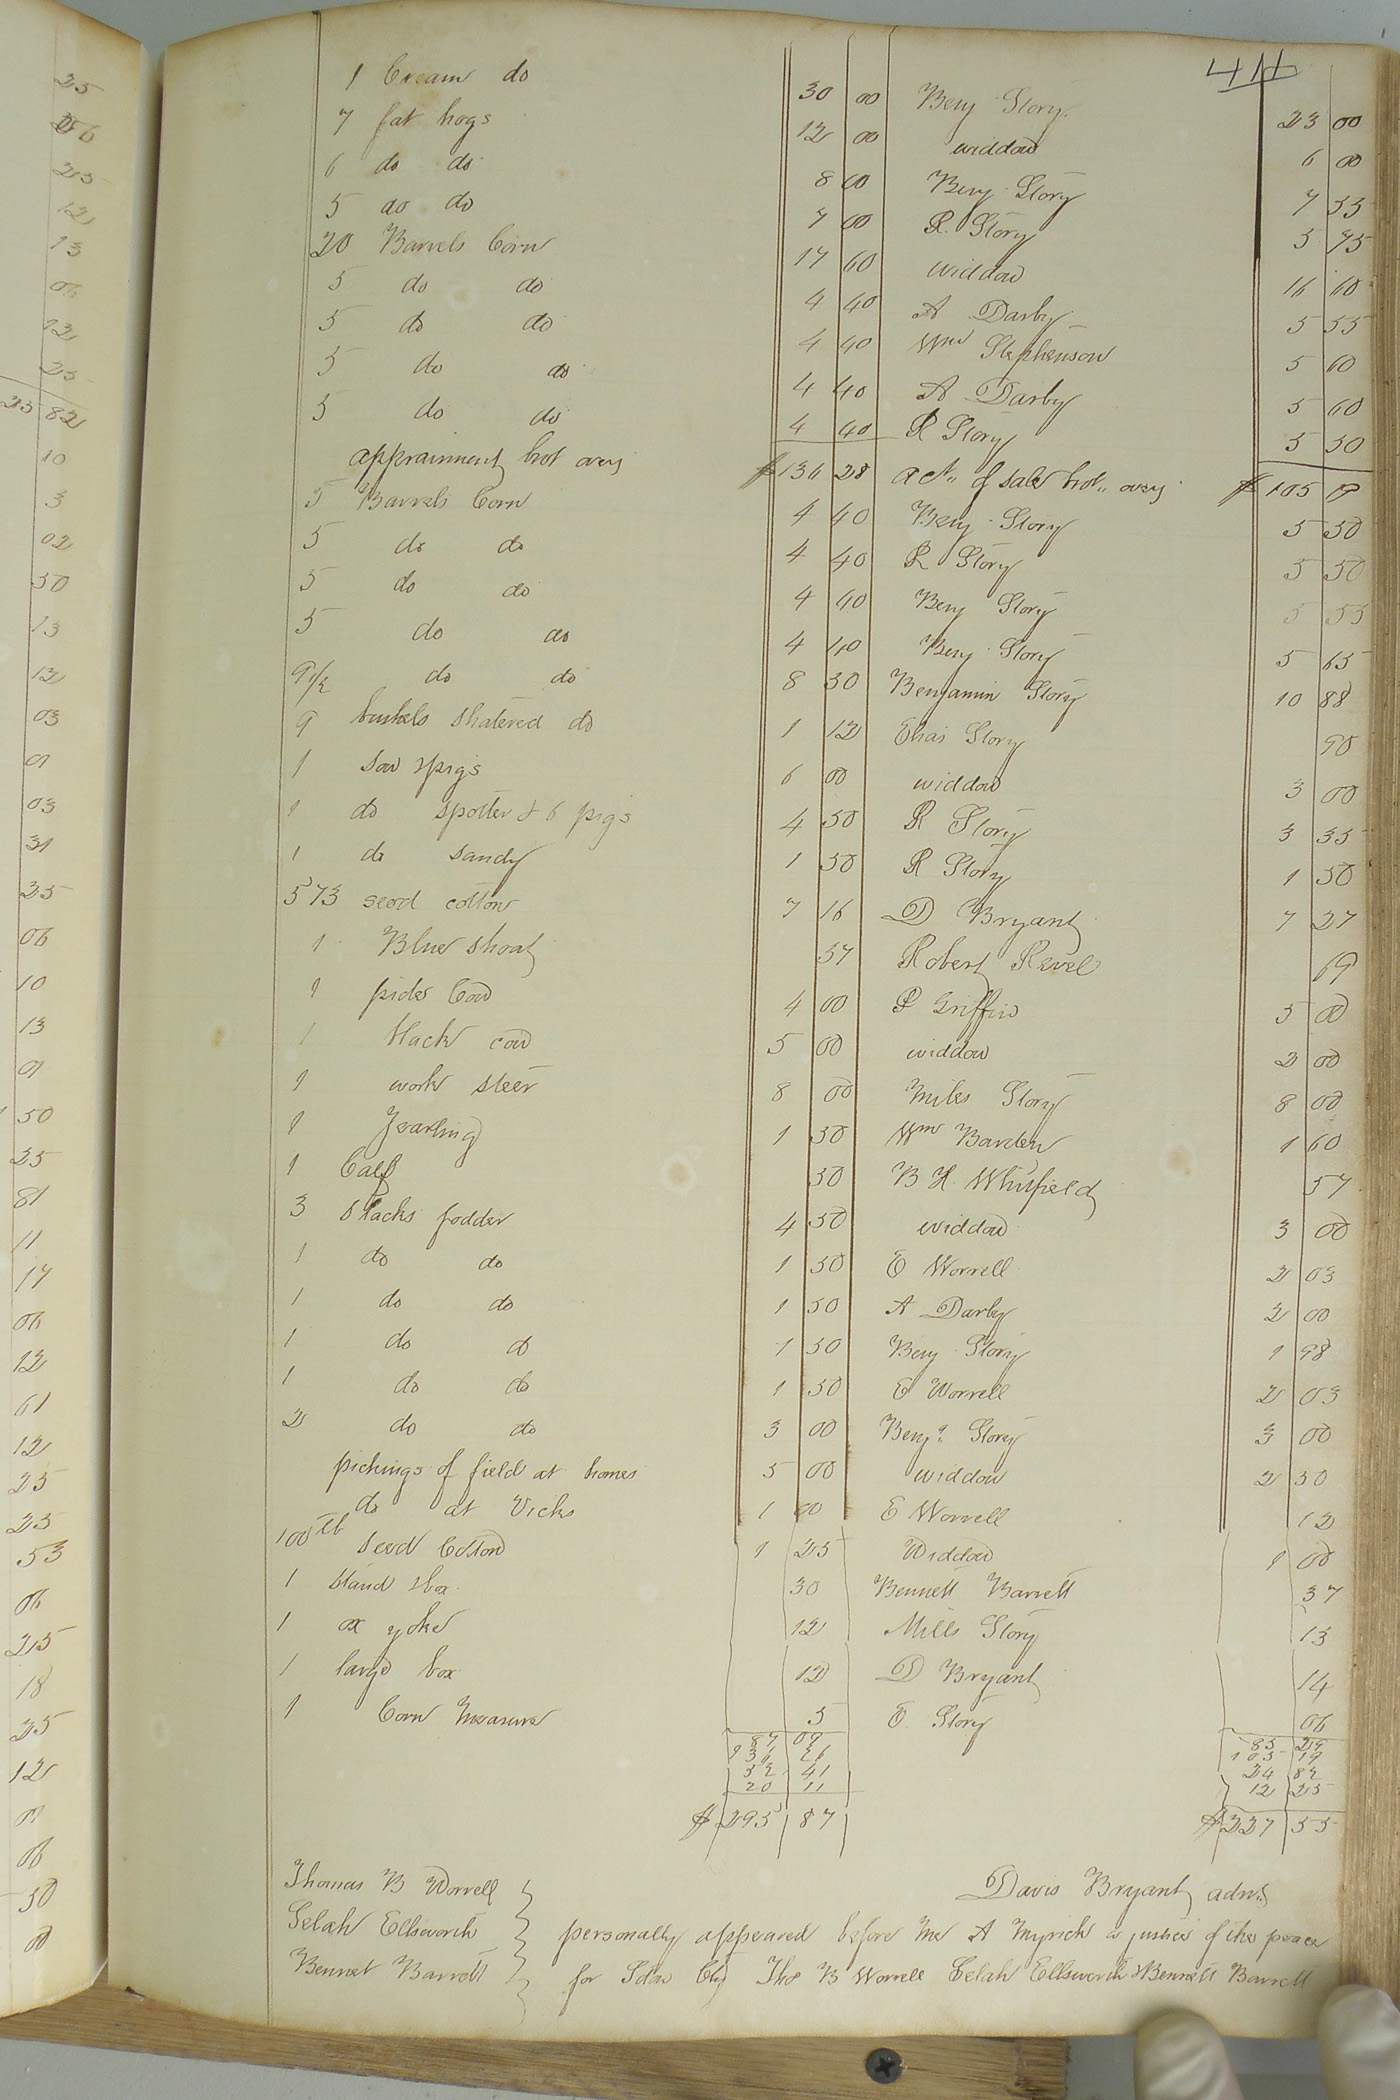 411
1 Cream do 30 00 Benj Story 23 00
7 fat hogs 12 00 widdow 6 00
6 do do 8 00 Benj Story 7 55
5 do do 7 00 R. Story 5 95
20 Barrels Corn 17 60 widdow 16 60
5 do do 4 40 A Darby 5 55
5 do do 4 40 Wm Stephenson 5 60
5 do do 4 40 A Darby 5 60
5 do do 4 40 R Story 5 50
$136 28 act,, of sale $105 19
5 Barrels Corn 4 40 Benj Story 5 50
5 do do 4 40 R Story 5 50
5 do do 4 40 Benj Story 5 55
5 do do 4 40 Benj Story 5 65
9 1/2 do do 8 50 Benjamin Story 10 88
9 bushels shatered do 1 12 Elias Story 90
1 Sow & pigs 6 00 widdow 3 00
1 do spotter & 6 pigs 4 50 R Story 3 35
1 do sandy 1 50 R Story 1 50
573 seed cotton 7 16 D Bryant 7 27
1 Blue shoat 37 Robert Revel 19
1 pided Cow 4 00 P Griffin 5 00
1 black cow 5 00 widdow 2 00
1 work steer 8 00 Miles Story 8 00
1 Yearling 1 50 Wm Barden 1 60
1 Calf 50 B H Whitfield 57
3 stacks fodder 4 50 widdow 3 00
1 do do 1 50 E Worrell 2 03
1 do do 1 50 A Darby 2 00
1 do do 1 50 Benj Story 1 98
1 do do 1 50 E Worrell 2 03
2 do do 3 00 Benjn. Story 3 00
pickings of field at home 5 00 widdow 2 50
do at Vicks 1 00 E Worrell 12
100 lb Seed Cotton 1 25 Widdow 1 00
1 Stand & box 30 Bennett Barrett 37
1 ox yoke 12 Mills Story 13
1 large box 12 D Bryant 14
1 Corn Measure 5 E. Story 06
87 09 85 29
136 28 105 19
52 41 24 82
20 11 12 25
$295 87 $227 55
Thomas B Worrell Davis Bryant adm.
Selah Ellsworth personally appeared before me A Myrick a justice of the peace
Bennet Barrett for Sd Cty Thos B Worrell Celah Ellsworth & Bennett Barrett